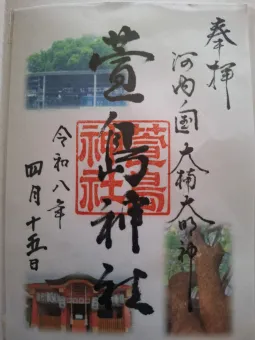 奉拝
河内ノ国 大楠大明神
萱島神社
萱島
神社
令和八年
四月十五日